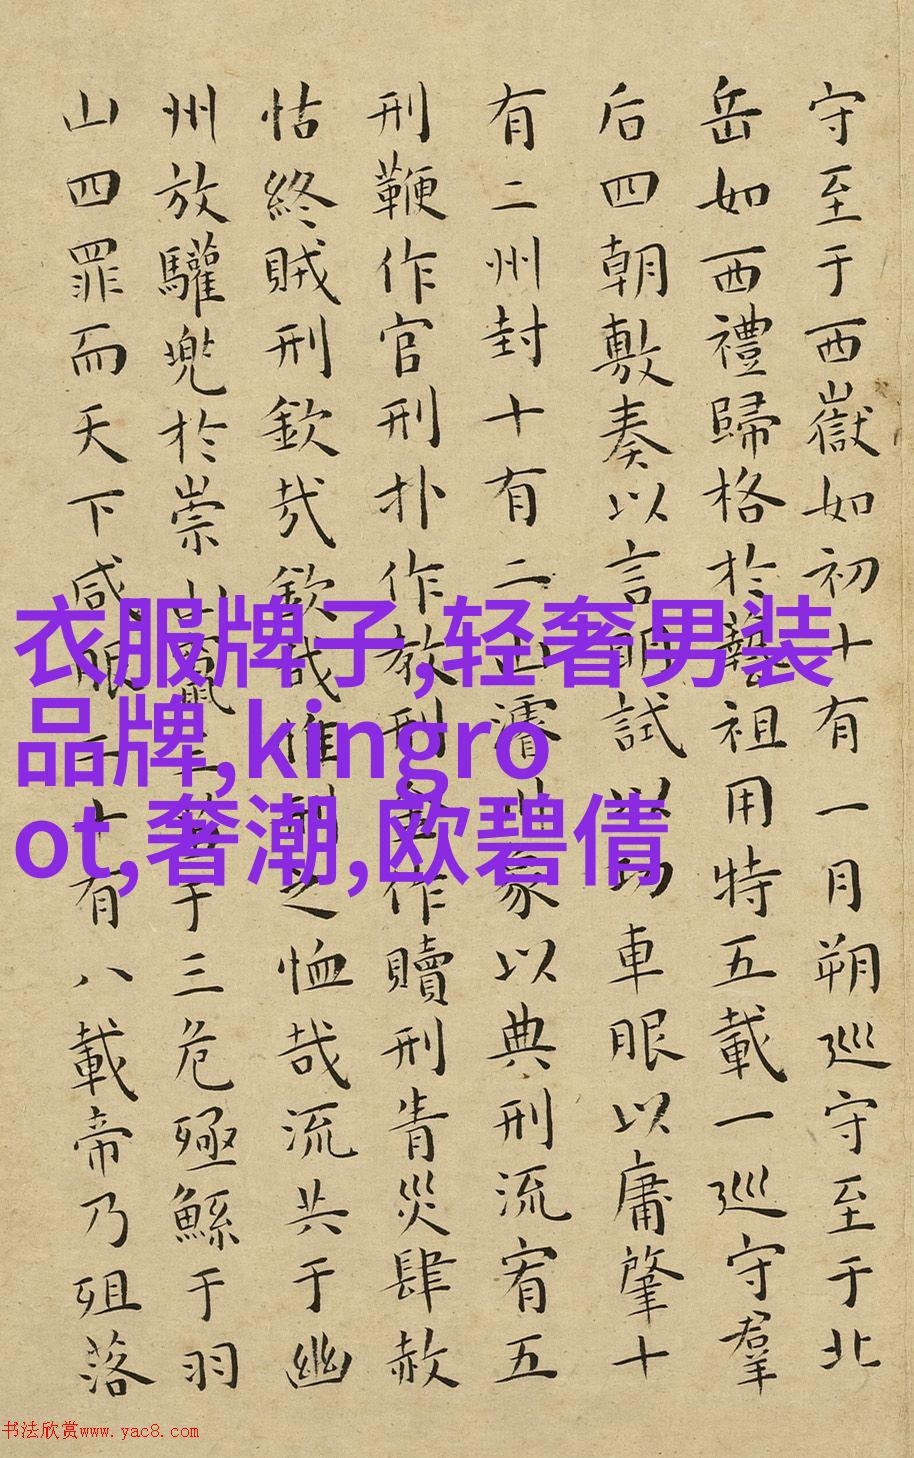 守至于西嶽如初十有一月朔巡守至于北
岳如西禮歸格於藝祖用特五載一巡守羣
后四朝敷奏以言明試以功車眼以庸肇十
有二州封十有二山濬川象以典刑流宥五
刑鞭作官刑扑作教刑金作贖刑眚災肆赦
怙終賊刑欽哉欽哉惟刑之恤哉流共于幽
州放驩兜於崇山竄三苗于三危殛鯀于羽
山四罪而天下咸服二十有八載帝乃殂落
衣服牌子,轻奢男装
品牌,kingro
ot,奢潮,欧碧倩
书法欣赏www.yac8.com